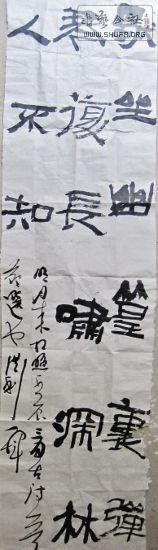 獨坐幽篁裏彈
琴復長嘯深林
人不知
明月来相照
书艺公社
WWW.SHUFA.ORG